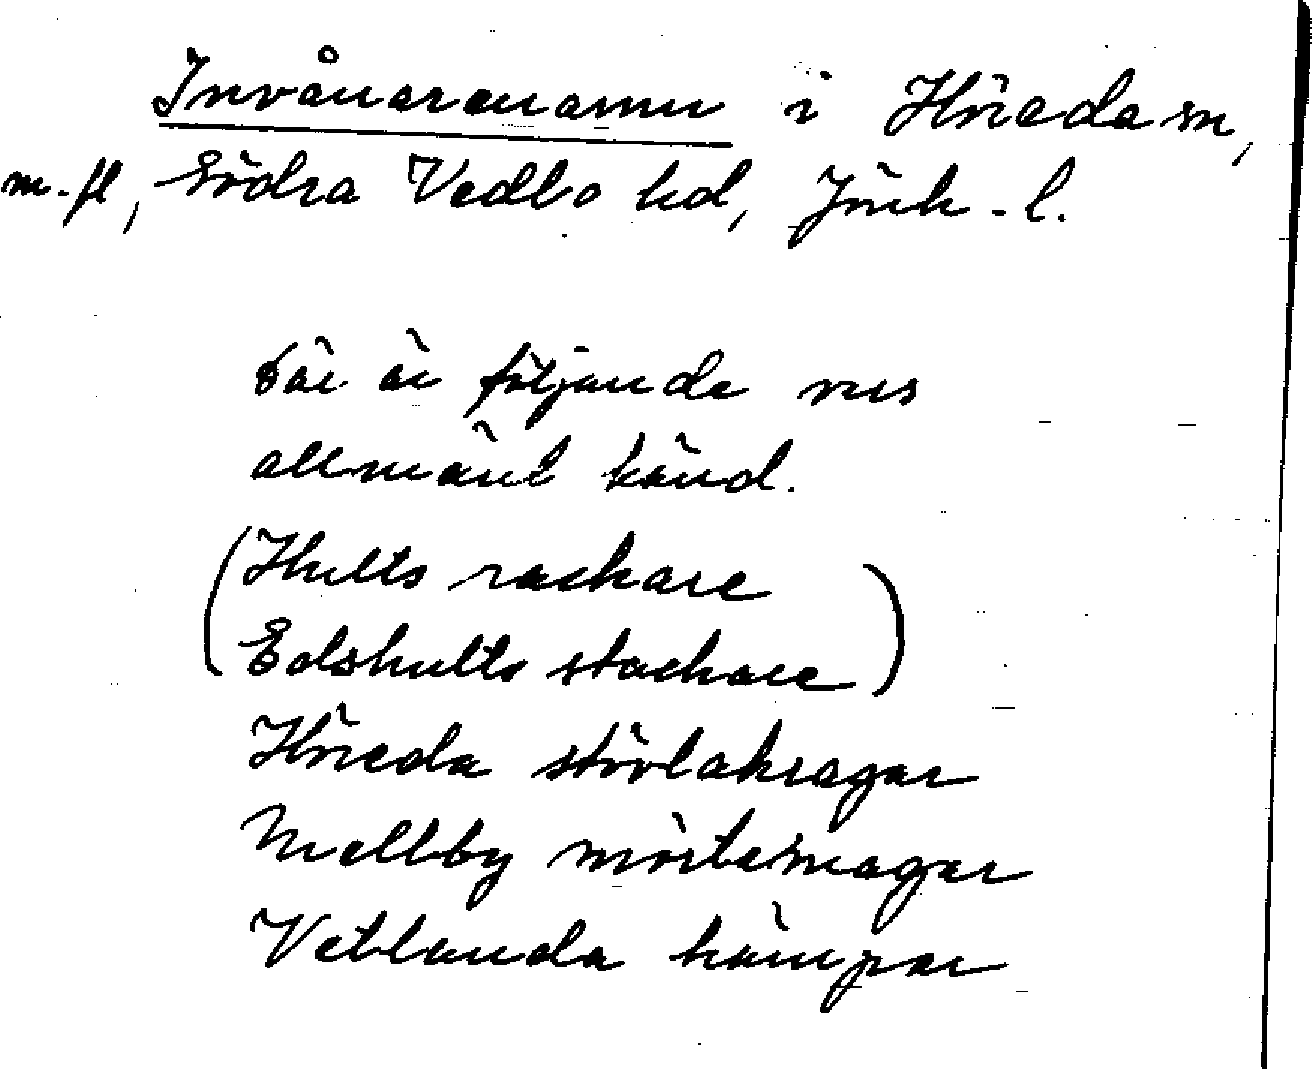 Invånarenamn i Höreda sn,
m. fl, Södra Vedbo hd, Jönk. l.
Här är följande vers
allmänt känd.
(Hults rackare
Edshults stackare)
Höreda stövlakragar
Mellby mörtamagar
Vetlanda kämpar